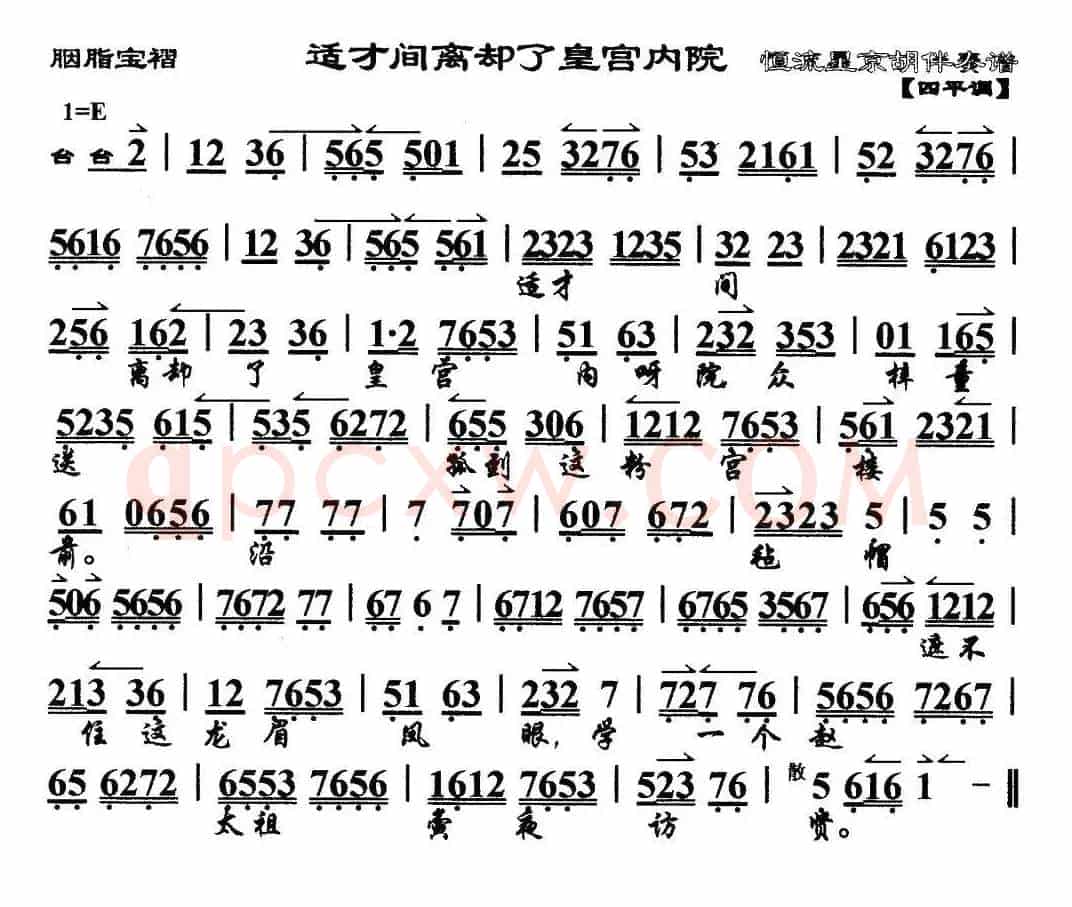 胭脂宝褶 适才间离却了皇宫内院 恒流星京胡伴奏谱
【四平调】
1=E
台台2 | 12 36 | 565 501 | 25 3276 | 53 2161 | 52 3276 |
5616 7656 | 12 36 | 565 561 | 2323 1235 | 32 23 | 2321 6123 |
适才 间
256 162 | 23 36 | 1·2 7653 | 51 63 | 232 353 | 01 165 |
离却 了 皇 宫 内 呀 院 众 梓 童
5235 615 | 535 6272 | 655 306 | 1212 7653 | 561 2321 |
送 孤到 这 粉 宫 楼
61 0656 | 77 77 | 7 707 | 607 672 | 2323 5 | 5 5 |
前。 沿 毡 帽
506 5656 | 7672 77 | 67 6 7 | 6712 7657 | 6765 3567 | 656 1212 |
遮不
213 36 | 12 7653 | 51 63 | 232 7 | 727 76 | 5656 7267 |
住 这 龙 眉 凤 眼,学 一 个 赵
65 6272 | 6553 7656 | 1612 7653 | 523 76 | 散 5 616 1 - ‖
太祖 黉 夜 访 贤。
qpcxw.COM